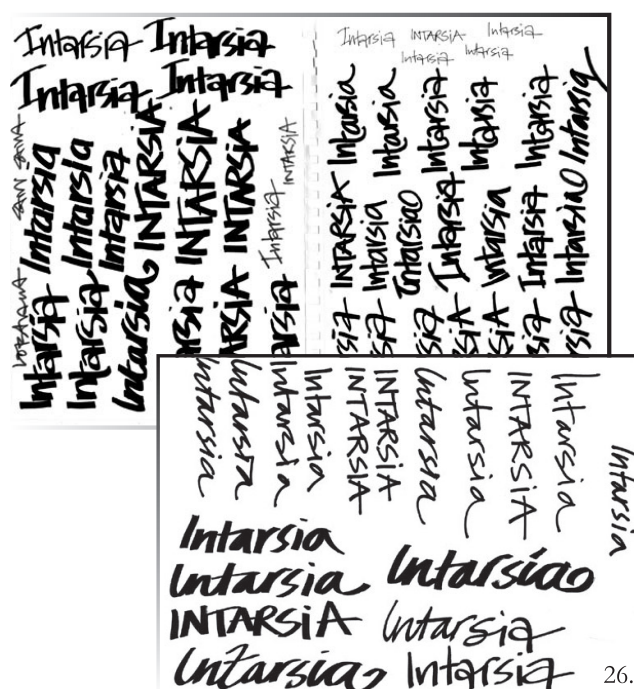 Intarsia Intarsia
Intarsia Intarsia
Intarsia
Intarsia
Intarsia
INTARSIA
INTARSiA
INTARSIA
Intarsia
INTARSIA
Intarsia
Intarsia
Intarsia
arsia
ARSIA
arsia
Intarsia INTARSIA Intarsia
Intarsia Intarsia
Intarsia
Intarsia
Intarsia
Intarsia
Intarsia
Intarsia
INTARSiA
Intarsia
Intarsia
Intarsia
Intarsia
Intarsia
Intarsia
sia
sia
sia
SiA
SiA
sia
rsia
Intarsia
Intarsia
Intarsia
Intarsia
INTARSIA
INTARSIA
Intarsia
Intarsia
INTARSIA
Intarsia
Intarsia
Intarsia
Intarsia Intarsia
INTARSiA Intarsia
Intarsia Intarsia
26.